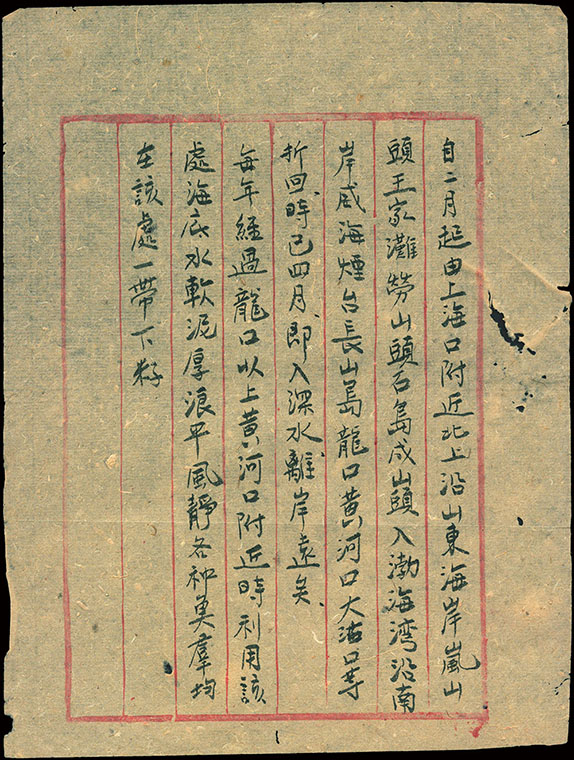 自二月起由上海口附近北上沿山東海岸嵐山
頭王家灘勞山頭石島成山頭入渤海湾沿南
岸威海煙台長山島龍口黄河口大沽口等
折回時已四月即入深水離岸遠矣、
每年經過龍口以上黄河口附近時利用該
處海底水軟泥厚浪平風靜各种魚羣均
在該處一帶下籽